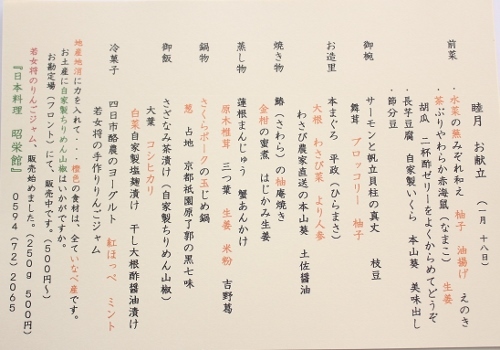 睦月 お献立 (一月 十八日)
前菜 ・水菜の蕪みぞれ和え 柚子 油揚げ えのき
・茶ぶりやわらか赤海鼠(なまこ) 生姜
胡瓜 二杯酢ゼリーをよくからめてどうぞ
・長芋豆腐 自家製いくら 本山葵 美味出し
・節分豆
御椀 サーモンと帆立貝柱の真丈 枝豆
舞茸 ブロッコリー 柚子
お造里 本まぐろ 平政(ひらまさ)
大根 わさび菜 より人参
わさび農家直送の本山葵 土佐醤油
焼き物 鰆(さわら)の柚庵焼き
金柑の蜜煮 はじかみ生姜
蒸し物 蓮根まんじゅう 蟹あんかけ
原木椎茸 三つ葉 生姜 米粉 吉野葛
鍋物 さくらポークの玉じめ鍋
葱 占地 京都祇園原了郭の黒七味
御飯 さざなみ茶漬け(自家製ちりめん山椒)
大葉 コシヒカリ
白菜自家製塩麹漬け 干し大根酢醤油漬け
冷菓子 四日市酪農のヨーグルト 紅ほっぺ ミント
若女将の手作りりんごジャム
地産地消に力を入れて・・・橙色の食材は、全ていなべ産です。
お土産に自家製ちりめん山椒はいかがですか。
お勘定場(フロント)にて、販売中です。(500円~)
若女将のりんごジャム、販売始めました。(250g 500円)
『日本料理 昭栄館』 0594(72)2065